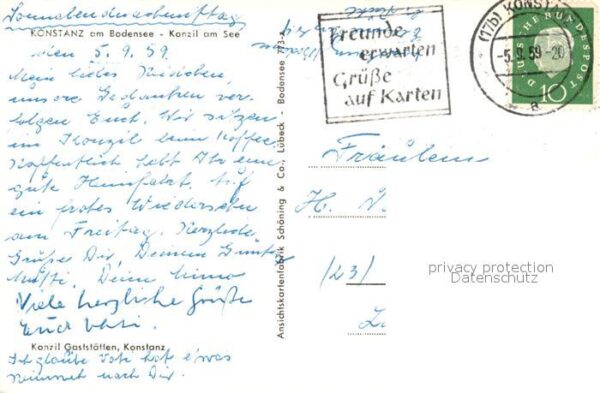 Sonnabendnachmittag
KONSTANZ am Bodensee - Konzil am See
den 5.9.59
Mein liebes
unsere Gedanken ver-
folgen Euch. Wir sitzen
im Konzil beim Kaffee.
Hoffentlich habt Ihr eine
gute Heimfahrt. Auf
ein frohes Wiedersehn
am Freitag. Herzliche
Grüße Dir, Deinem
Mutti, Deine
Viele herzliche Grüße
Euch
Konzil Gaststätten, Konstanz
Ich glaube hat etwas
nach Dir.
Ansichtskartenfabrik Schöning & Co., Lübeck - Bodensee 773-A
Freunde
erwarten
Grüße
auf Karten
(17b) KONST
-5.9.59-20
a
DEUTSCHE BUNDESPOST
10
Fräulein
H. V.
(23)
Z.
privacy protection
Datenschutz